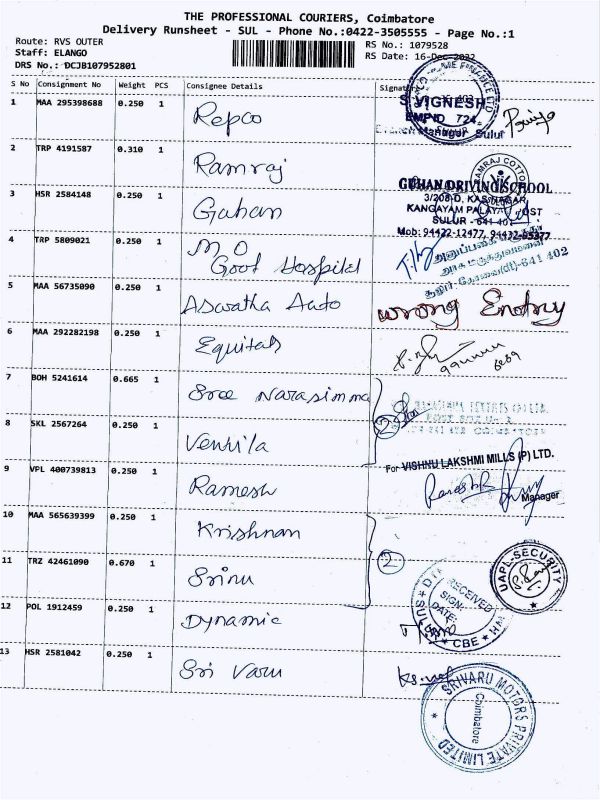 THE PROFESSIONAL COURIERS, Coimbatore
Delivery Runsheet - SUL - Phone No.:0422-3505555 - Page No.:1
Route: RVS OUTER
RS No.: 1079528
Staff: ELANGO
RS Date: 16-Dec-2022
DRS No.: DCJB107952801
S No Consignment No Weight PCS Consignee Details Signature
1 MAA 295398688 0.250 1 Repco
S. VIGNESH
EMP ID 724
Branch Manager Sulur
2 TRP 4191587 0.310 1 Ramraj
RAMRAJ COTTON
3 HSR 2584148 0.250 1 Guhan
GUHAN DRIVING SCHOOL
3/208-D, KAS NAGAR,
KANGAYAM PALAYAM POST
SULUR - 641 401
Mob: 94422-12477, 94432-55377
4 TRP 5809021 0.250 1 M O
Govt Hospital
அரசு மருத்துவமனை
641 402
5 MAA 56735090 0.250 1 Aswatha Auto Wrong Entry
6 MAA 292282198 0.250 1 Equitas
7 BOH 5241614 0.665 1 Sree Narasimma
2
8 SKL 2567264 0.250 1 Venkila
For VISHNU LAKSHMI MILLS (P) LTD.
Manager
9 VPL 400739813 0.250 1 Ramesh
10 MAA 565639399 0.250 1 Krishnan
2
UAPL-SECURITY
11 TRZ 42461090 0.670 1 Srinu
RECEIVED
SIGN:
DATE:
SULUR CBE
12 POL 1912459 0.250 1 Dynamic
13 HSR 2581042 0.250 1 Sri Varu
SRIVARU MOTORS PRIVATE LIMITED
Coimbatore